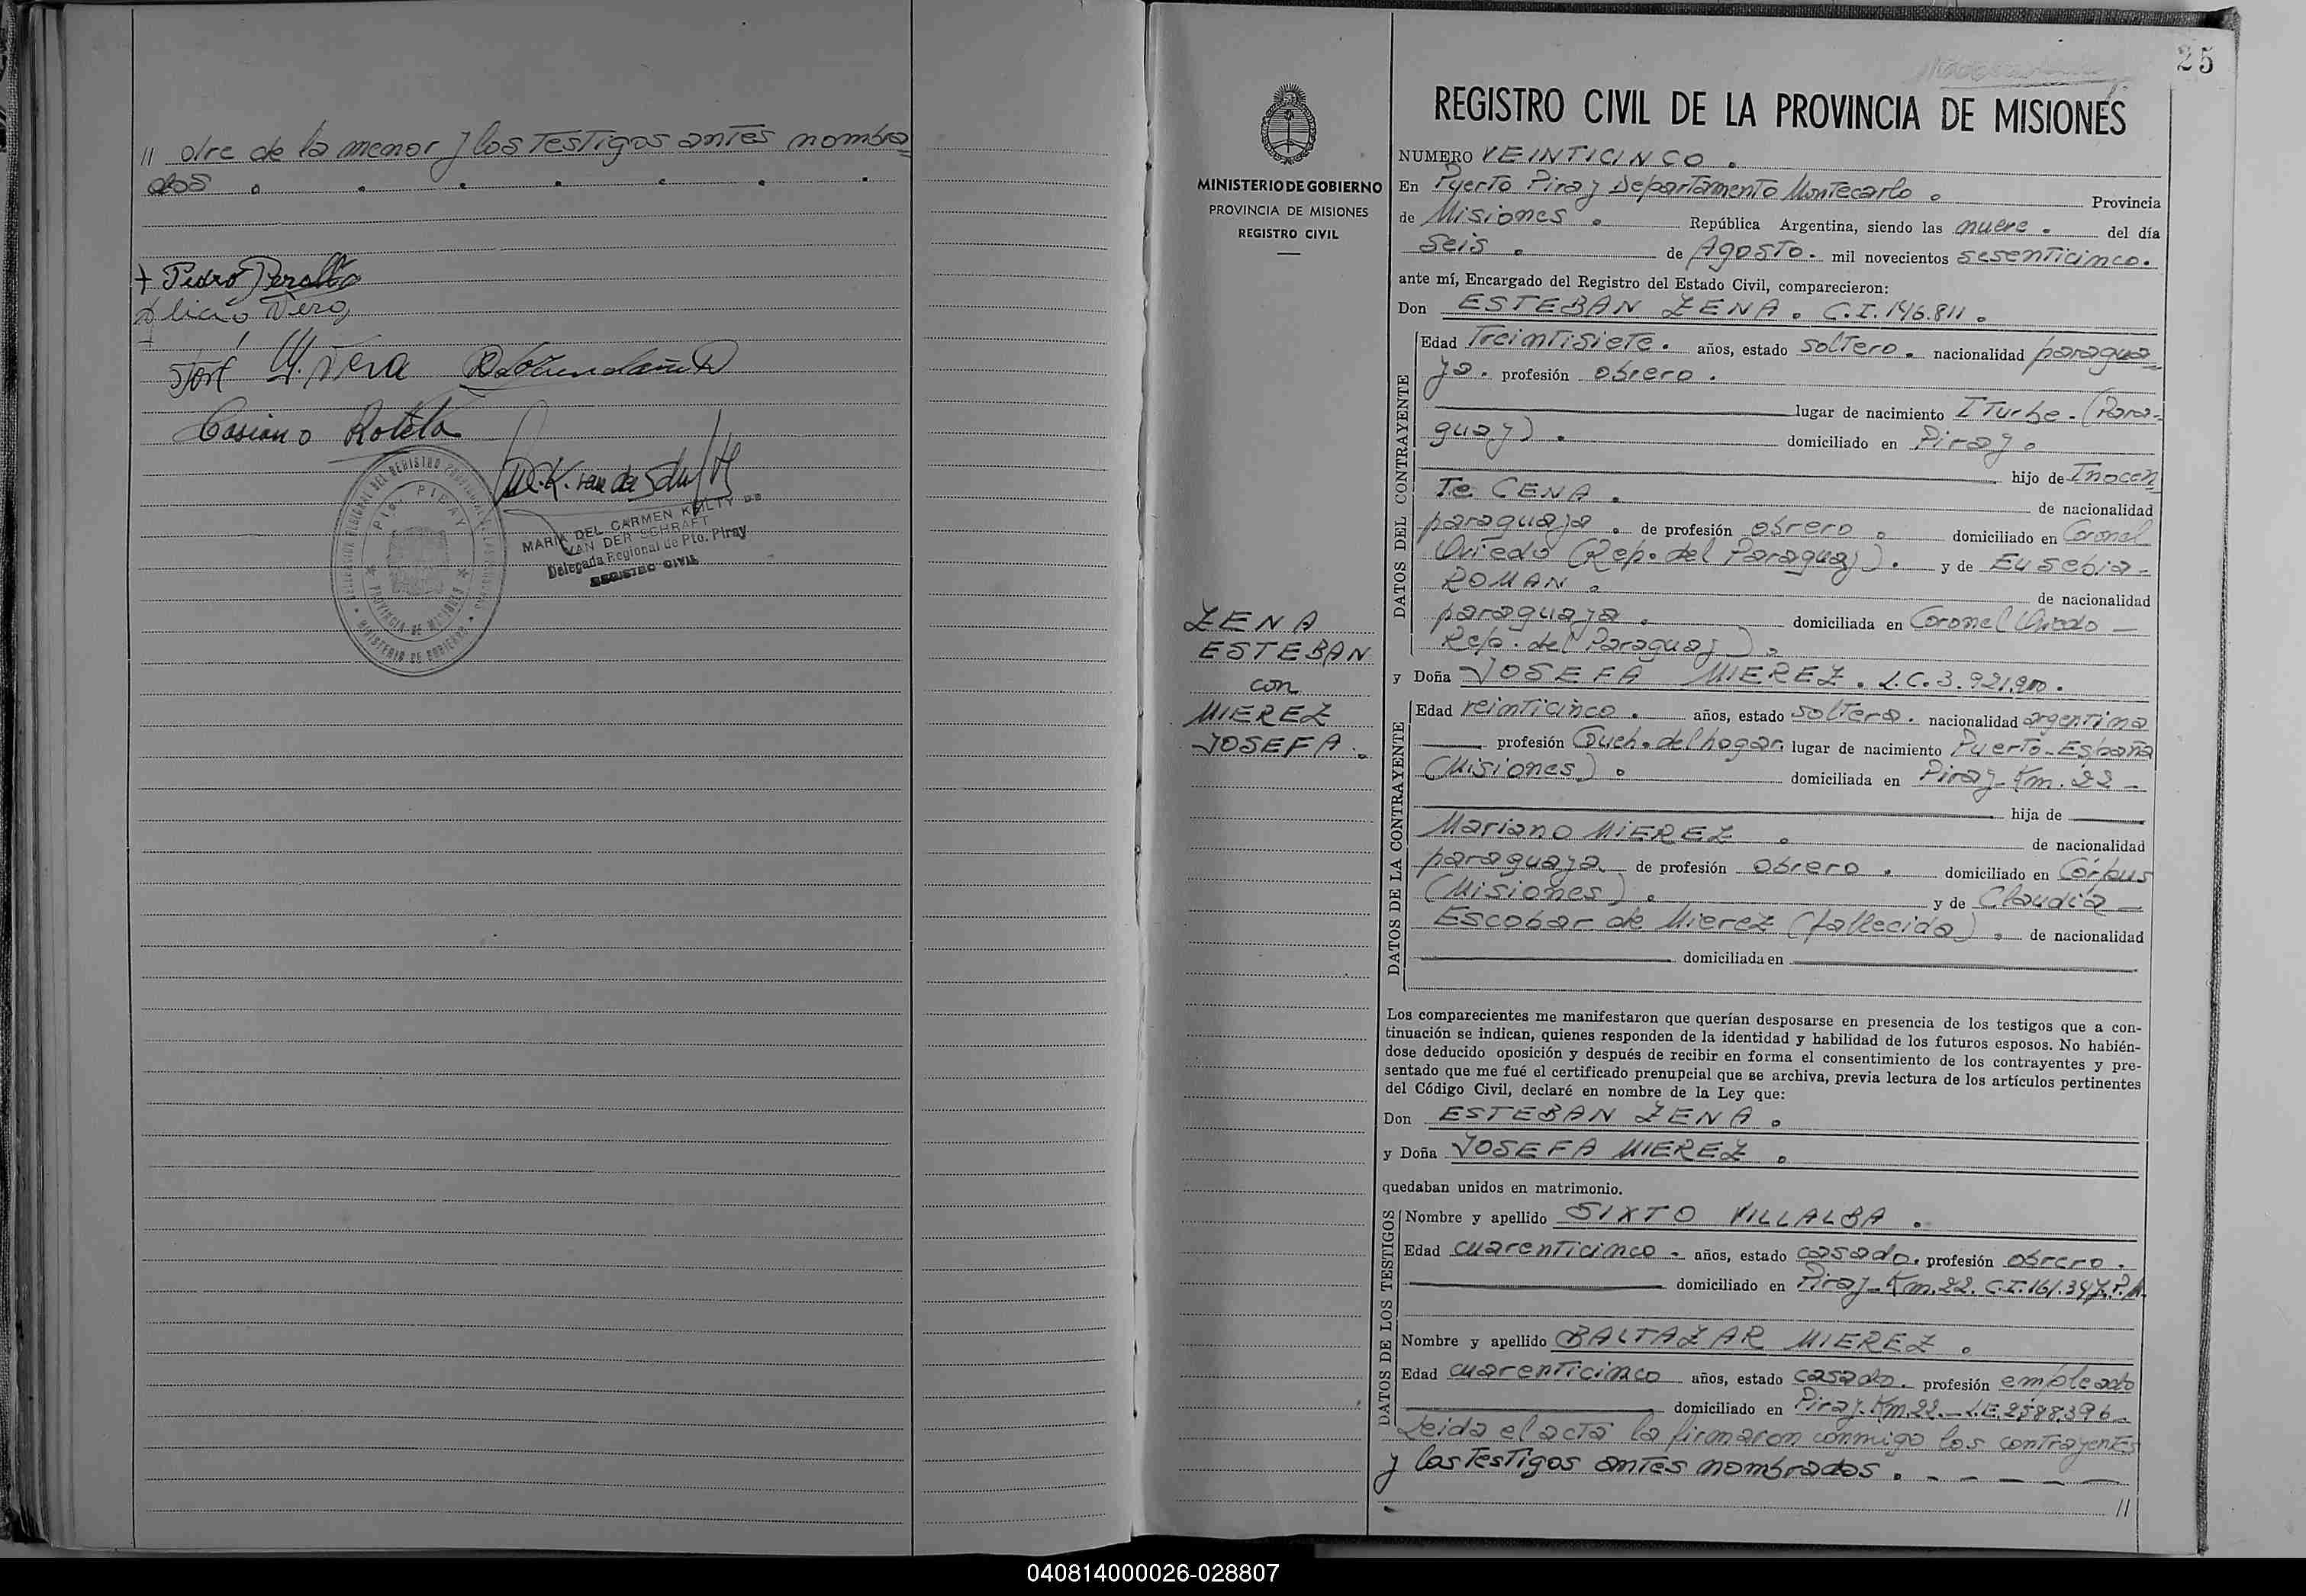 // dre de la menor y los Testigos antes nombra
dos . . . . . . .
+ Pedro Peralta
Alicia Vera
José M. Vera
Casiano Rotela
M. K. van der Schraft
MARIA DEL CARMEN KEILTY DE
VAN DER SCHRAFT
Delegada Regional de Pto. Piray
REGISTRO CIVIL
PROVINCIA DE MISIONES
MINISTERIO DE GOBIERNO
25
MINISTERIO DE GOBIERNO
PROVINCIA DE MISIONES
REGISTRO CIVIL
ZENA
ESTEBAN
con
MIEREZ
JOSEFA.
REGISTRO CIVIL DE LA PROVINCIA DE MISIONES
NUMERO VEINTICINCO .
En Puerto Piray Departamento Montecarlo . Provincia
de Misiones . República Argentina, siendo las nueve . del día
seis . de Agosto . mil novecientos sesenticinco.
ante mí, Encargado del Registro del Estado Civil, comparecieron:
Don ESTEBAN ZENA . C.I. 146.811 .
DATOS DEL CONTRAYENTE
Edad Treintisiete . años, estado soltero . nacionalidad paragua
ya . profesión obrero .
lugar de nacimiento ITurbe . (Para-
guay) . domiciliado en Piray .
hijo de Inocen
Te CENA . de nacionalidad
paraguaya . de profesión obrero . domiciliado en Coronel
Oviedo (Rep. del Paraguay) . y de Eusebia -
ROMAN . de nacionalidad
paraguaya . domiciliada en Coronel Oviedo -
Rep. del Paraguay) .
y Doña JOSEFA MIEREZ . L.C. 3.921.910 .
DATOS DE LA CONTRAYENTE
Edad veinticinco . años, estado soltera . nacionalidad argentina
profesión Queh. del hogar lugar de nacimiento Puerto España
(Misiones) . domiciliada en Piray Km. 22 -
hija de
Mariano MIEREZ . de nacionalidad
paraguaya de profesión obrero . domiciliado en Córpus
(Misiones) . y de Claudia -
Escobar de Mierez (fallecida) . de nacionalidad
domiciliada en
Los comparecientes me manifestaron que querían desposarse en presencia de los testigos que a con-
tinuación se indican, quienes responden de la identidad y habilidad de los futuros esposos. No habién-
dose deducido oposición y después de recibir en forma el consentimiento de los contrayentes y pre-
sentado que me fué el certificado prenupcial que se archiva, previa lectura de los artículos pertinentes
del Código Civil, declaré en nombre de la Ley que:
Don ESTEBAN ZENA .
y Doña JOSEFA MIEREZ .
quedaban unidos en matrimonio.
DATOS DE LOS TESTIGOS
Nombre y apellido SIXTO VILLALBA .
Edad cuarenticinco . años, estado casado . profesión obrero .
domiciliado en Piray Km. 22. C.I. 161.347
Nombre y apellido BALTAZAR MIEREZ .
Edad cuarenticinco años, estado casado . profesión empleado
domiciliado en Piray Km. 22. - L.E. 2.588.396 -
Leida el acta la firmaron conmigo los contrayentes
y los Testigos antes nombrados . - - - - -
//
040814000026-028807